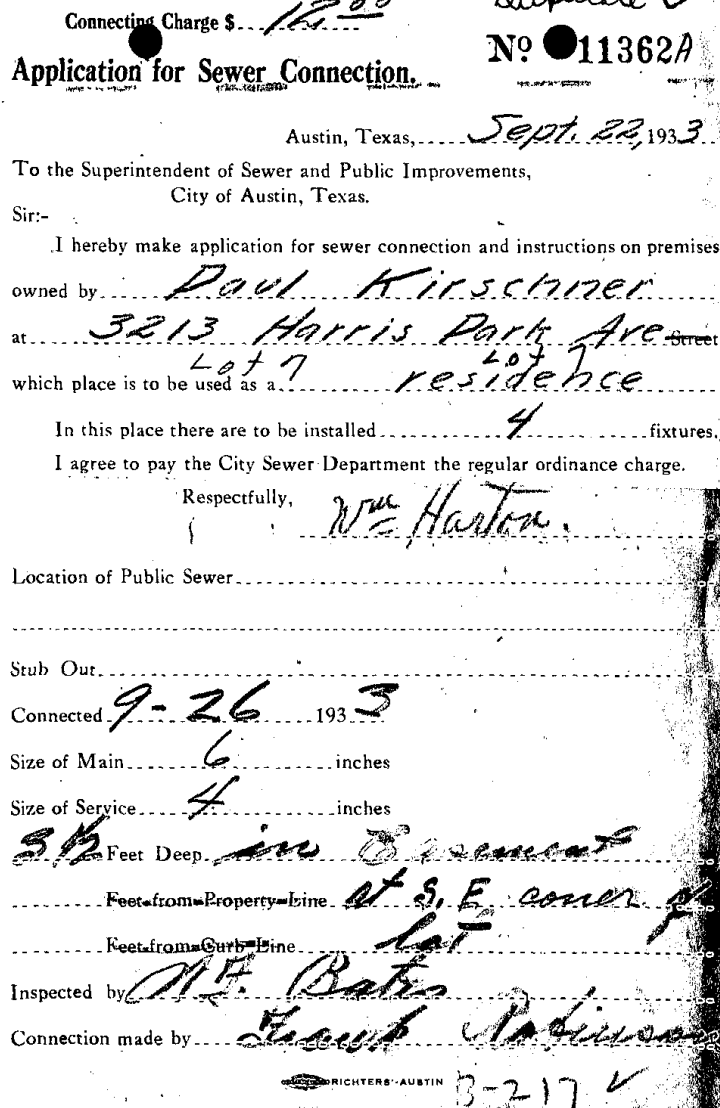 Duplicate ✓
Connecting Charge $ 12.00
Nº 11362A
Application for Sewer Connection.
Austin, Texas, Sept. 22, 1933
To the Superintendent of Sewer and Public Improvements,
City of Austin, Texas.
Sir:-
I hereby make application for sewer connection and instructions on premises
owned by Paul Kirschner
at 3213 Harris Park Ave Street
Lot 7 Lot 7
which place is to be used as a residence
In this place there are to be installed 4 fixtures.
I agree to pay the City Sewer Department the regular ordinance charge.
Respectfully, Wm Harton.
Location of Public Sewer
Stub Out
Connected 9-26 1933
Size of Main 6 inches
Size of Service 4 inches
3½ Feet Deep in Easement
Feet from Property Line at S.E corner of
Feet from Curb Line lot
Inspected by Bates
Connection made by Frank Robinson
RICHTERS-AUSTIN B-217 ✓